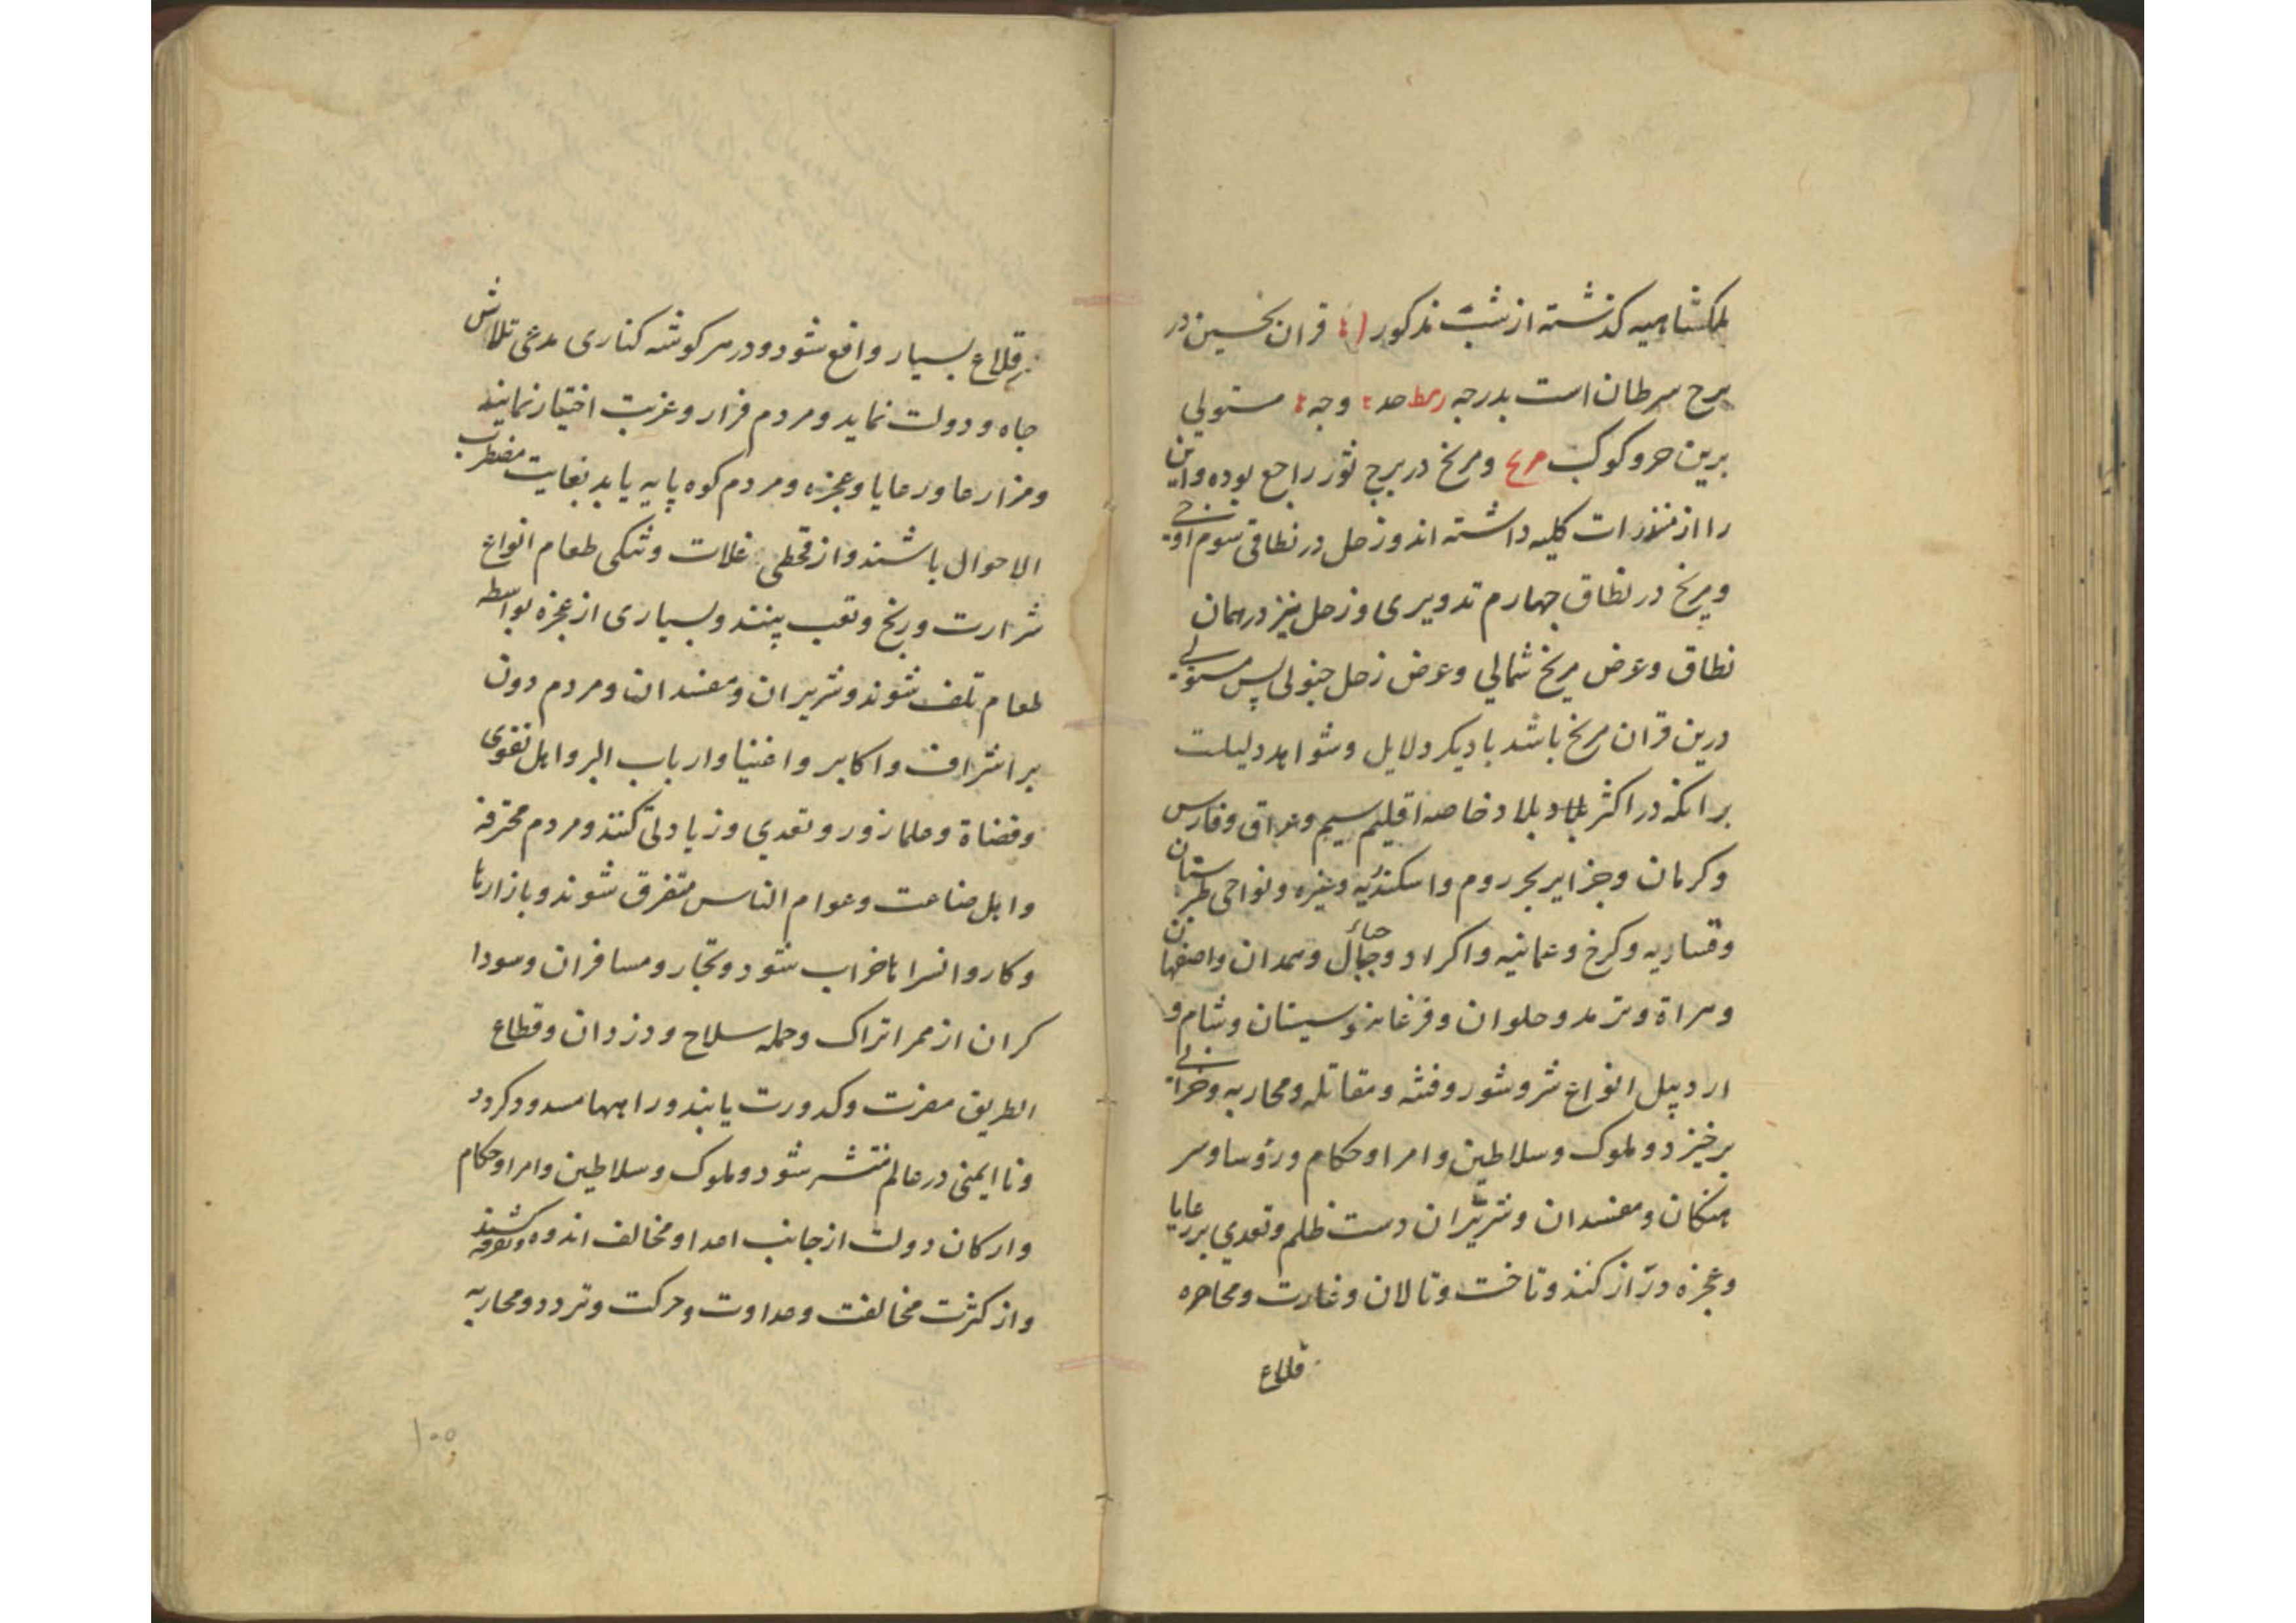 ملکشاهیه کذشته از شب مذکور قران نحسین در
برج سرطان است بدرجه حد وجه مستولی
برین هر دو کوکب مریخ ومریخ در برج ثور راجع بوده واین
را از منذرات کلیه داشته اند وزحل در نطاق سوم اوجی
ومریخ در نطاق چهارم تدویری وزحل نیز در همان
نطاق وعرض مریخ شمالی وعرض زحل جنوبی پس مستولی
درین قران مریخ باشد با دیکر دلایل وشواهد دلیلست
برانکه در اکثر بلاد خاصه اقلیم سیم وعراق وفارس
وکرمان وجزایر بحر روم واسکندریه وغیره ونواحی طبرستان
وقساریه وکرخ وعمانیه واکراد وجبال وهمدان واصفهان
وهراة وترمد وحلوان وفرغانه وسیستان وشام و
اردبیل انواع شر وشور وفتنه ومقاتله ومحاربه وخرابی
برخیزد وملوک وسلاطین وامرا وحکام ورؤسا وسر
هنکان ومفسدان وشریران دست ظلم وتعدی بر رعایا
وعجزه دراز کنند وتاخت وتالان وغارت ومحاصره
قلاع
قلاع بسیار واقع شود ودر هر کوشه کناری مدعی تلاش
جاه ودولت نماید ومردم فرار وغربت اختیار نمایند
ومزارعا ورعایا وعجزه ومردم کوه پایه باید بغایت مضطرب
الاحوال باشند واز قحطی غلات وتنکی طعام انواع
شرارت ورنج وتعب بینند وبسیاری از عجزه بواسطه
طعام تلف شوند وشریران ومفسدان ومردم دون
بر اشراف واکابر واغنیا وارباب البر واهل تقوی
وقضاة وعلما زور وتعدی وزیادتی کنند ومردم محترفه
واهل صناعت وعوام الناس متفرق شوند وبازارها
وکاروانسراها خراب شود وتجار ومسافران وسودا
کران از ممر اتراک وحمله سلاح ودزدان وقطاع
الطریق مضرت وکدورت یابند وراهها مسدود کردد
ونا ایمنی در عالم منتشر شود وملوک وسلاطین وامرا وحکام
وارکان دولت از جانب اعدا ومخالف اندوه وتفرقه کشند
واز کثرت مخالفت وعداوت وحرکت وتردد ومحاربه
۱۰۰